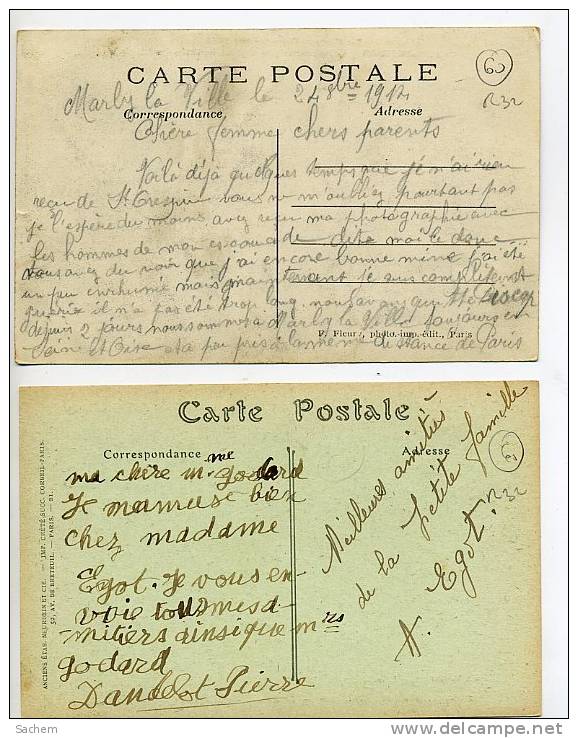 CARTE POSTALE
60
R32
Marly la Ville le 24 8bre 1914
Correspondance
Adresse
Chère femme chers parents
Voilà déjà quelques temps que je n'ai rien
reçu de St Crespin vous ne m'oubliez pourtant pas
je l'espère du moins avez reçu ma photographie avec
les hommes de mon escouade dite moi le donc
vous avez du voir que j'ai encore bonne mine j'ai été
un peu enrhumé mais maintenant je suis complètement
guerie il n'a pas été trop long nous avons quitté
depuis 2 jours nous sommes a Marly la Ville toujours en
Seine et Oise et a peu près à la même distance de Paris
P. Fleury, photo.-imp.-édit., Paris
Carte Postale
Correspondance
Adresse
ma chère me godard
Je mamuse bien
chez madame
Egot. Je vous en-
voie tous mes a-
mitiers ainsi que mrs
godard
Pierre
Meilleures amitiés
de la petite famille
A. Egot.
R32
ANCIENS ÉTAB. NEURDEIN ET CIE. — IMP. CRÉTÉ SUCC. CORBEIL-PARIS.
52, AV. DE BRETEUIL. — PARIS.
Sachem
delcampe.net